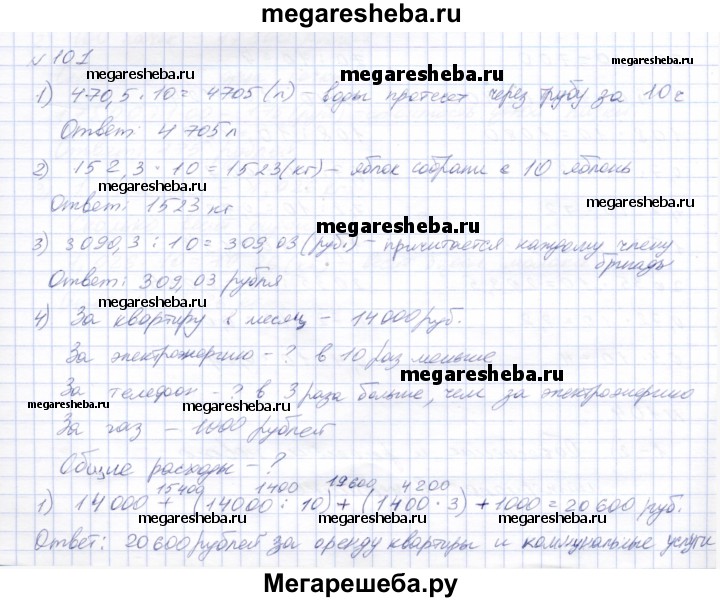 megaresheba.ru
№ 101
megaresheba.ru megaresheba.ru megaresheba.ru
1) 470,5 · 10 = 4705 (л) – воды протечёт через трубу за 10 с
Ответ: 4 705 л
2) 152,3 · 10 = 1523 (кг) – яблок собрали с 10 яблонь
Ответ: 1523 кг
megaresheba.ru
megaresheba.ru megaresheba.ru
3) 3090,3 : 10 = 309,03 (руб.) – причитается каждому члену
бригады
Ответ: 309,03 рубля
megaresheba.ru megaresheba.ru
4) За квартиру в месяц – 14000 руб.
За электроэнергию – ? в 10 раз меньше
megaresheba.ru
За телефон – ? в 3 раза больше, чем за электроэнергию
megaresheba.ru megaresheba.ru megaresheba.ru
За газ – 1000 рублей
Общие расходы – ?
15400 1400 19600 4200
1) 14000 + (14000 : 10) + (1400 · 3) + 1000 = 20600 руб.
megaresheba.ru megaresheba.ru megaresheba.ru
Ответ: 20600 рублей за оренду квартиры и коммунальные услуги
Мегарешеба.ру